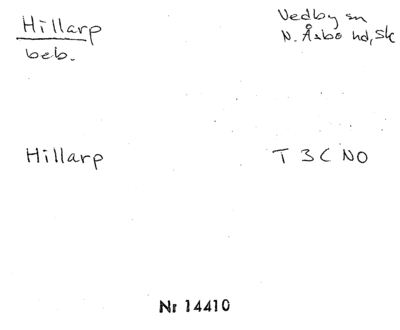 Hillarp
beb.
Vedby sn
N. Åsbo hd, Sk
Hillarp
T 3 C NO
Nr 14410